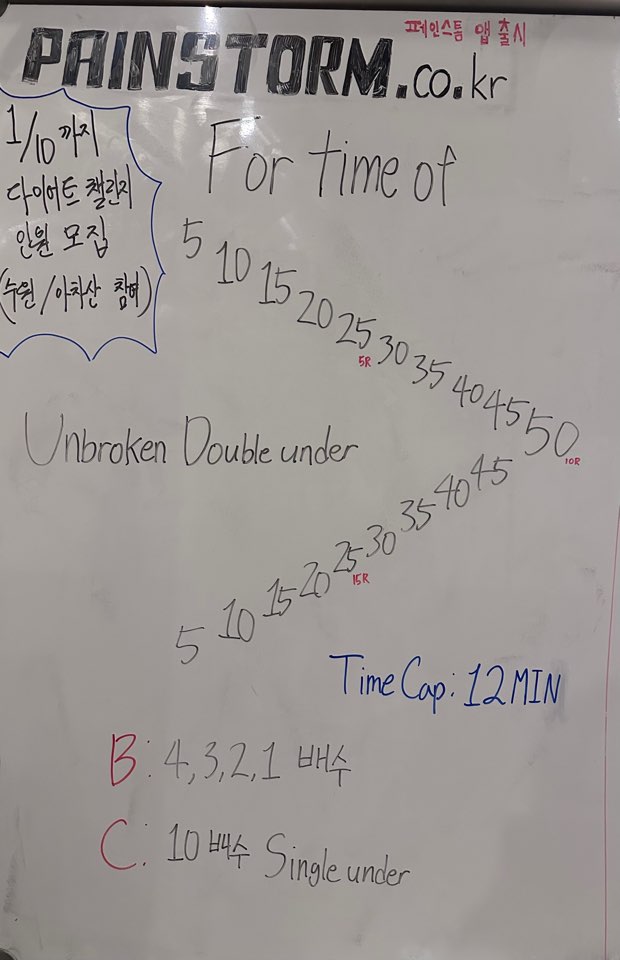 페인스톰 앱 출시
PAINSTORM.co.kr
1/10까지
다이어트 챌린지
인원 모집
(수원/아차산 참여)
For time of
5
10
15
20
25
5R
30
35
40
45
50
10R
Unbroken Double under
45
40
35
30
25
15R
20
15
10
5
Time Cap: 12 MIN
B: 4,3,2,1 배수
C: 10배수 Single under